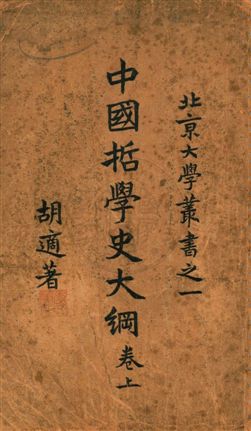 北亰大學叢書之一
中國哲學史大綱 卷上
胡適著